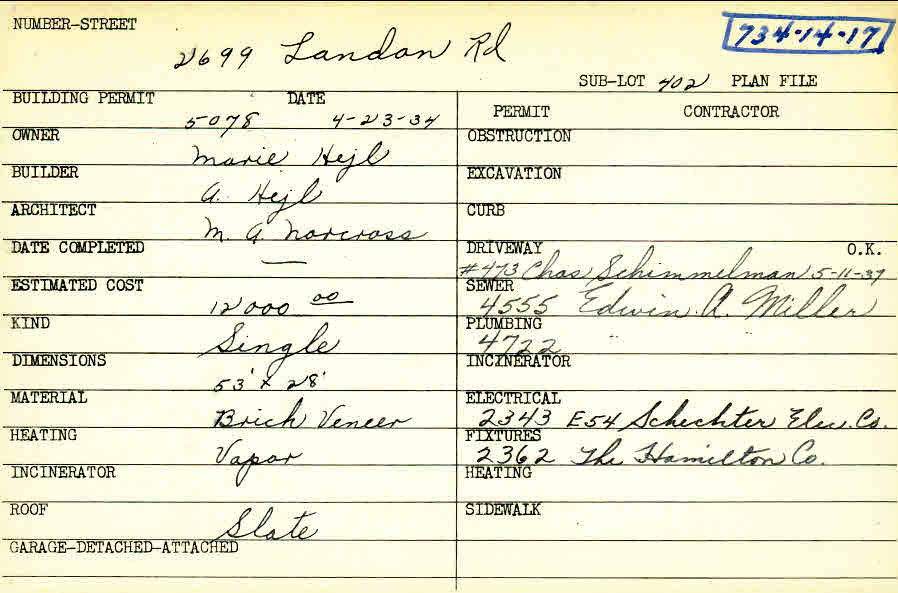 NUMBER-STREET
2699 Landon Rd
734-14-17
SUB-LOT 402 PLAN FILE
BUILDING PERMIT DATE
5078 4-23-34
PERMIT CONTRACTOR
OWNER
Marie Hejl
OBSTRUCTION
BUILDER
A. Hejl
EXCAVATION
ARCHITECT
M. A. Norcross
CURB
DATE COMPLETED
—
DRIVEWAY O.K.
#473 Chas Schimmelman 5-11-37
ESTIMATED COST
12000 00
SEWER
4555 Edwin A. Miller
KIND
Single
PLUMBING
4722 "
DIMENSIONS
53' x 28'
INCINERATOR
MATERIAL
Brick Veneer
ELECTRICAL
2343 E54 Schechter Elec. Co.
HEATING
Vapor
FIXTURES
2362 The Hamilton Co.
INCINERATOR
HEATING
ROOF
Slate
SIDEWALK
GARAGE-DETACHED-ATTACHED